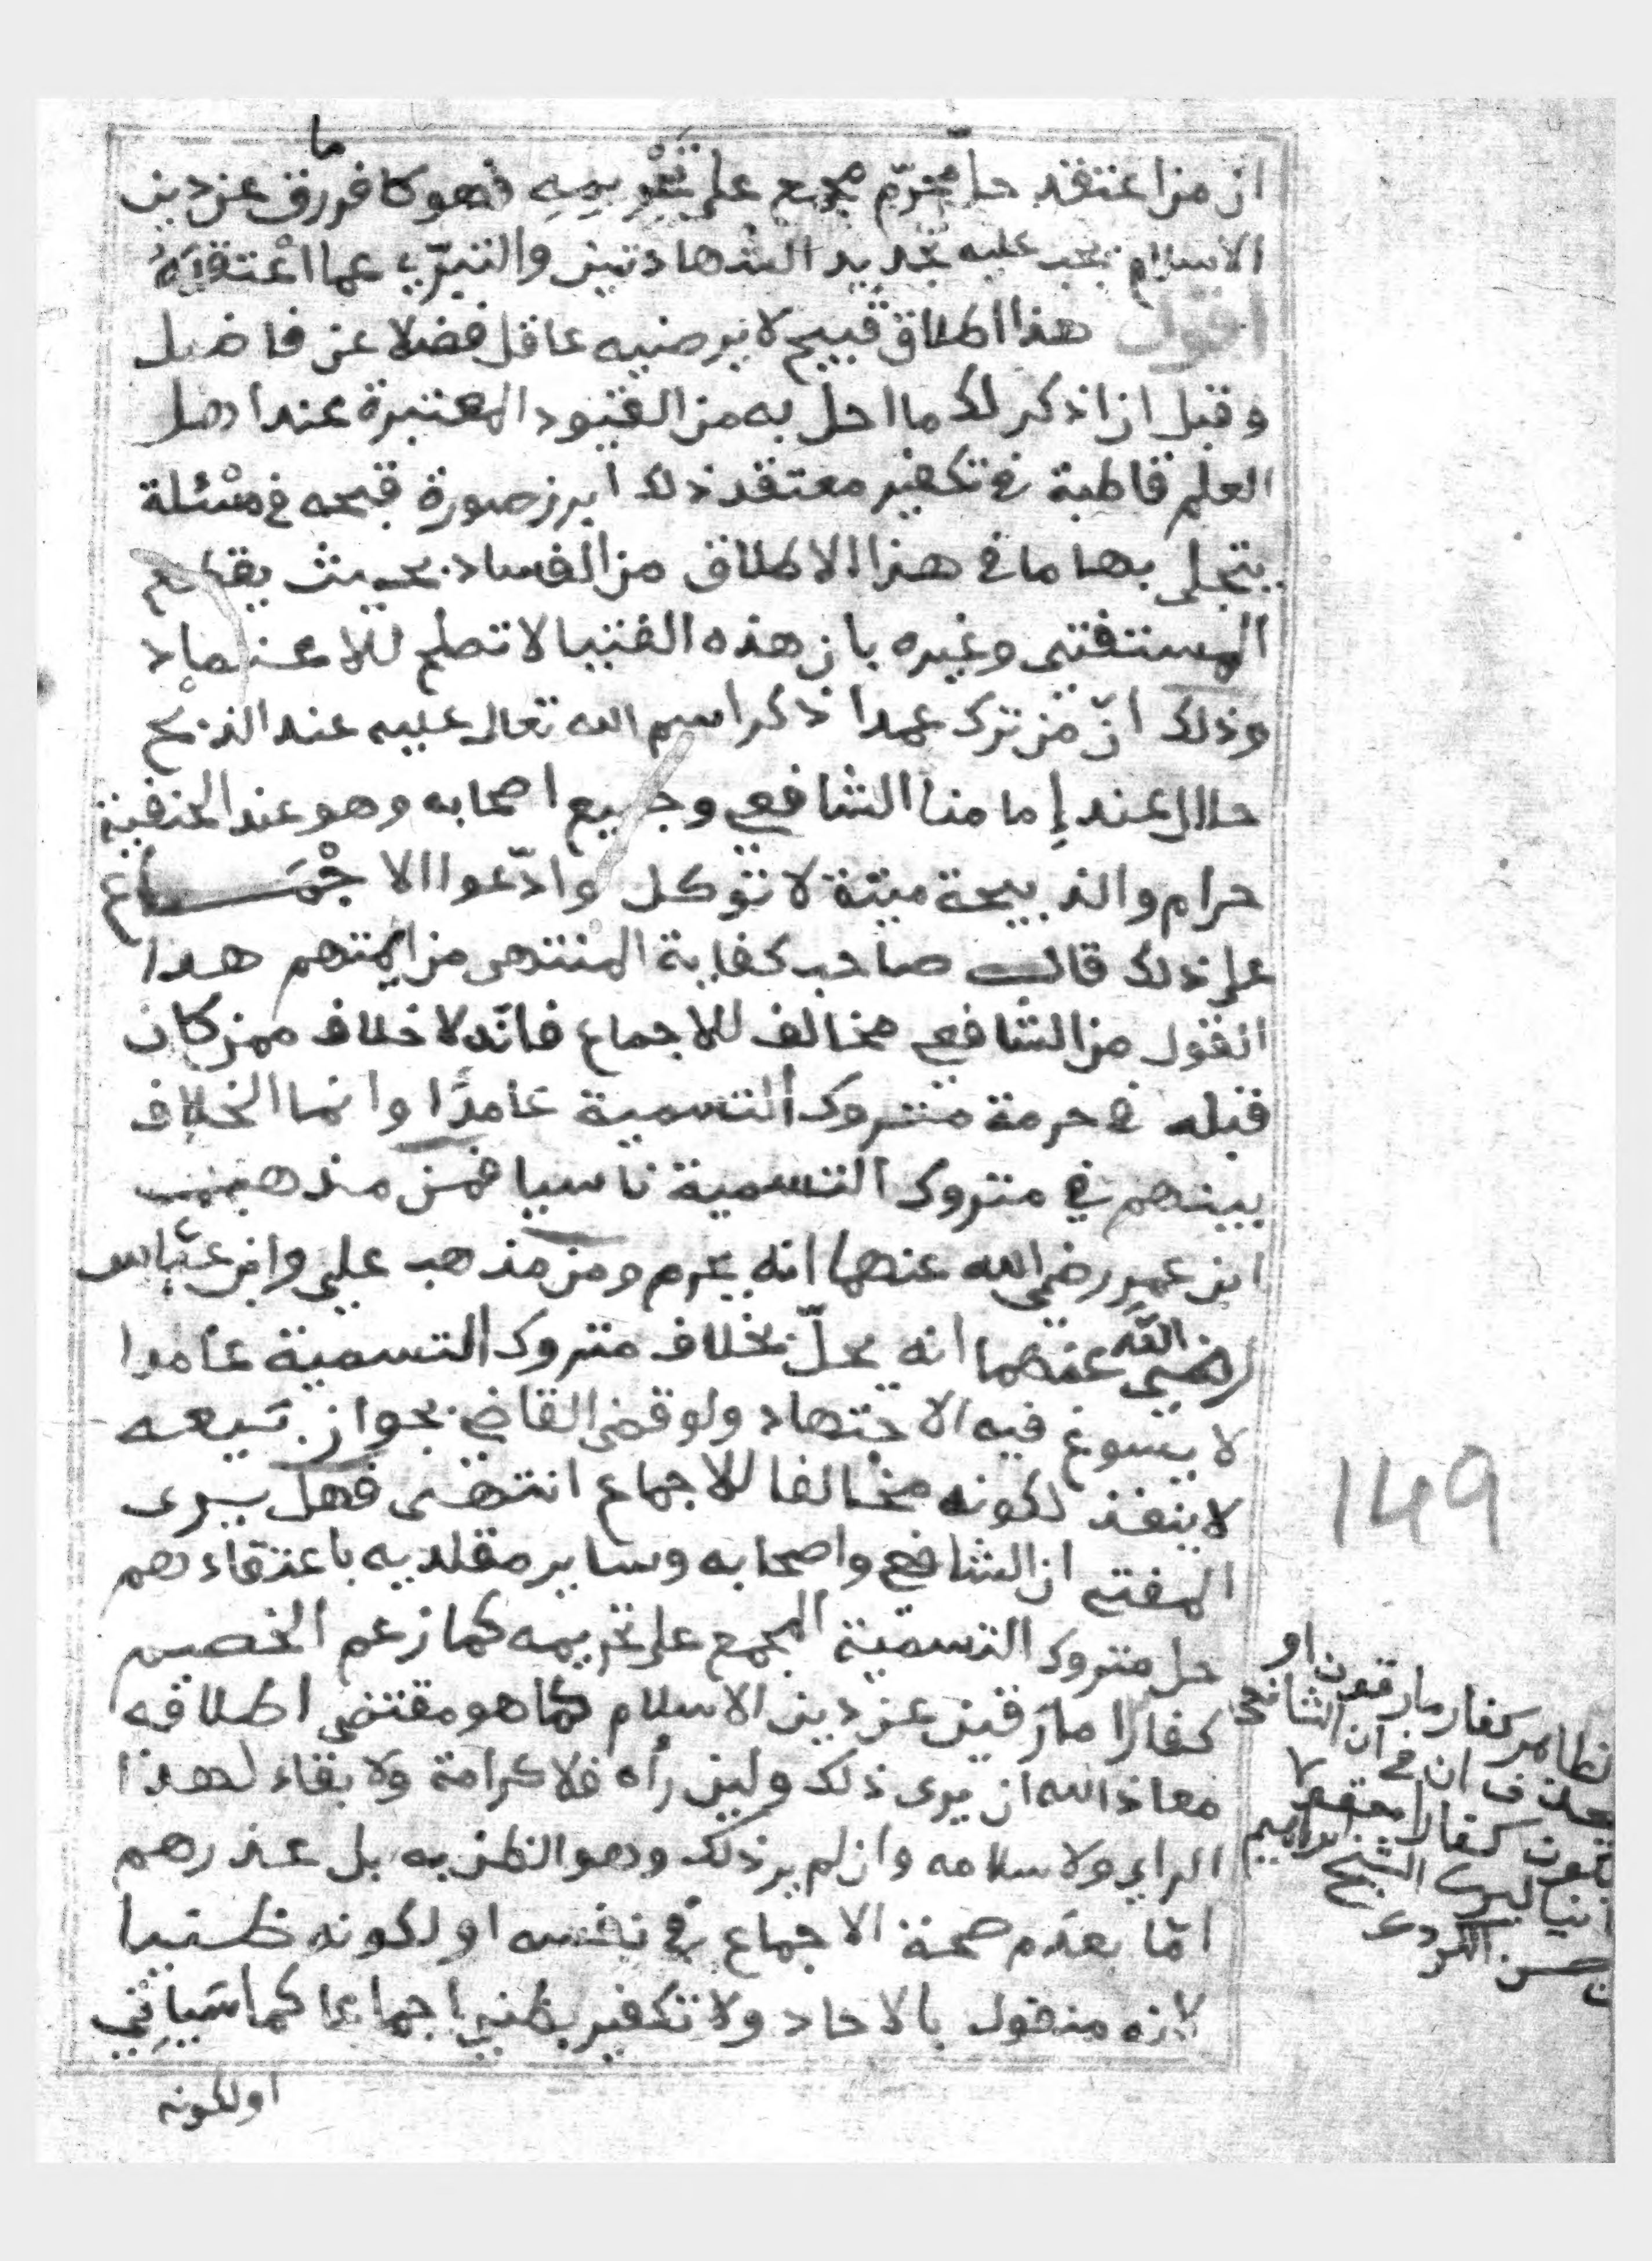 ما
ان من اعتقد حل محرّم مجمع على تحْريمِهِ فهو كافر رق عن دين
الاسلام يجب عليه تجديد الشهادتين والتبرّي عما اعْتقدَهُ
اقول هذا اطلاق قبيح لا يرضيه عاقل فضلا عن فاضل
وقبل ان اذكر لك ما احل به من القيود المعتبرة عند اهل
العلم قاطبة في تكفير معتقد ذلك ابرز صورة قبحه في مسْئلة
يتجلى بها ما في هذا الاطلاق من الفساد بحيث يقطع
المستفتى وغيره بان هذه الفتيا لا تصلح للاعتماد
وذلك انّ مَن ترك عمدا ذكر اسم الله تعالى عليه عند الذبْح
حلال عند إمامنا الشافعي وجميع اصحابه وهو عند الحنفية
حرام والذبيحة ميتة لا تؤكل وادّعوا الاجْمَاع
على ذلك قال صاحب كفاية المنتهى من ايمتهم هذا
القول من الشافعي مخالف للاجماع فانّه لا خلاف ممن كان
قبله في حرمة متروك التسمية عامدًا وانما الخلاف
بينهم في متروك التسمية ناسيا فمن مذهب
ابن عمر رضي الله عنهما انه يحرم ومن مذهب على وابن عبّاس
رضي الله عنهما انه يحلّ بخلاف متروك التسمية عامدا
لا يسوغ فيه الاجتهاد ولو قضى القاضي بجواز بَيعه
لا ينفذ لكونه مخالفا للاجماع انتهى فهل يرى
المفتي ان الشافعي واصحابه وساير مقلديه باعتقادهم
حل متروك التسمية المجمع على تحريمه كما زعم الخصم
كفارا مارقين عن دين الاسلام كما هو مقتضى اطلاقه
معاذ الله ان يرى ذلك ولين رأه فلا كرامة ولا بقاء لهذا
الراي ولا سلامه وان لم ير ذلك وهو الظن به بل عذرهم
امّا بعدَم صحة الاجماع في نفسه او لكونه ظنيا
لانه منقول بالاحاد ولا تكفير بظني اجماعا كما سَياتي
او لكونه
149
كفار مارقون او
ان في ان الشافعي
كفارا
الشيخ ابراهيم
الكردي